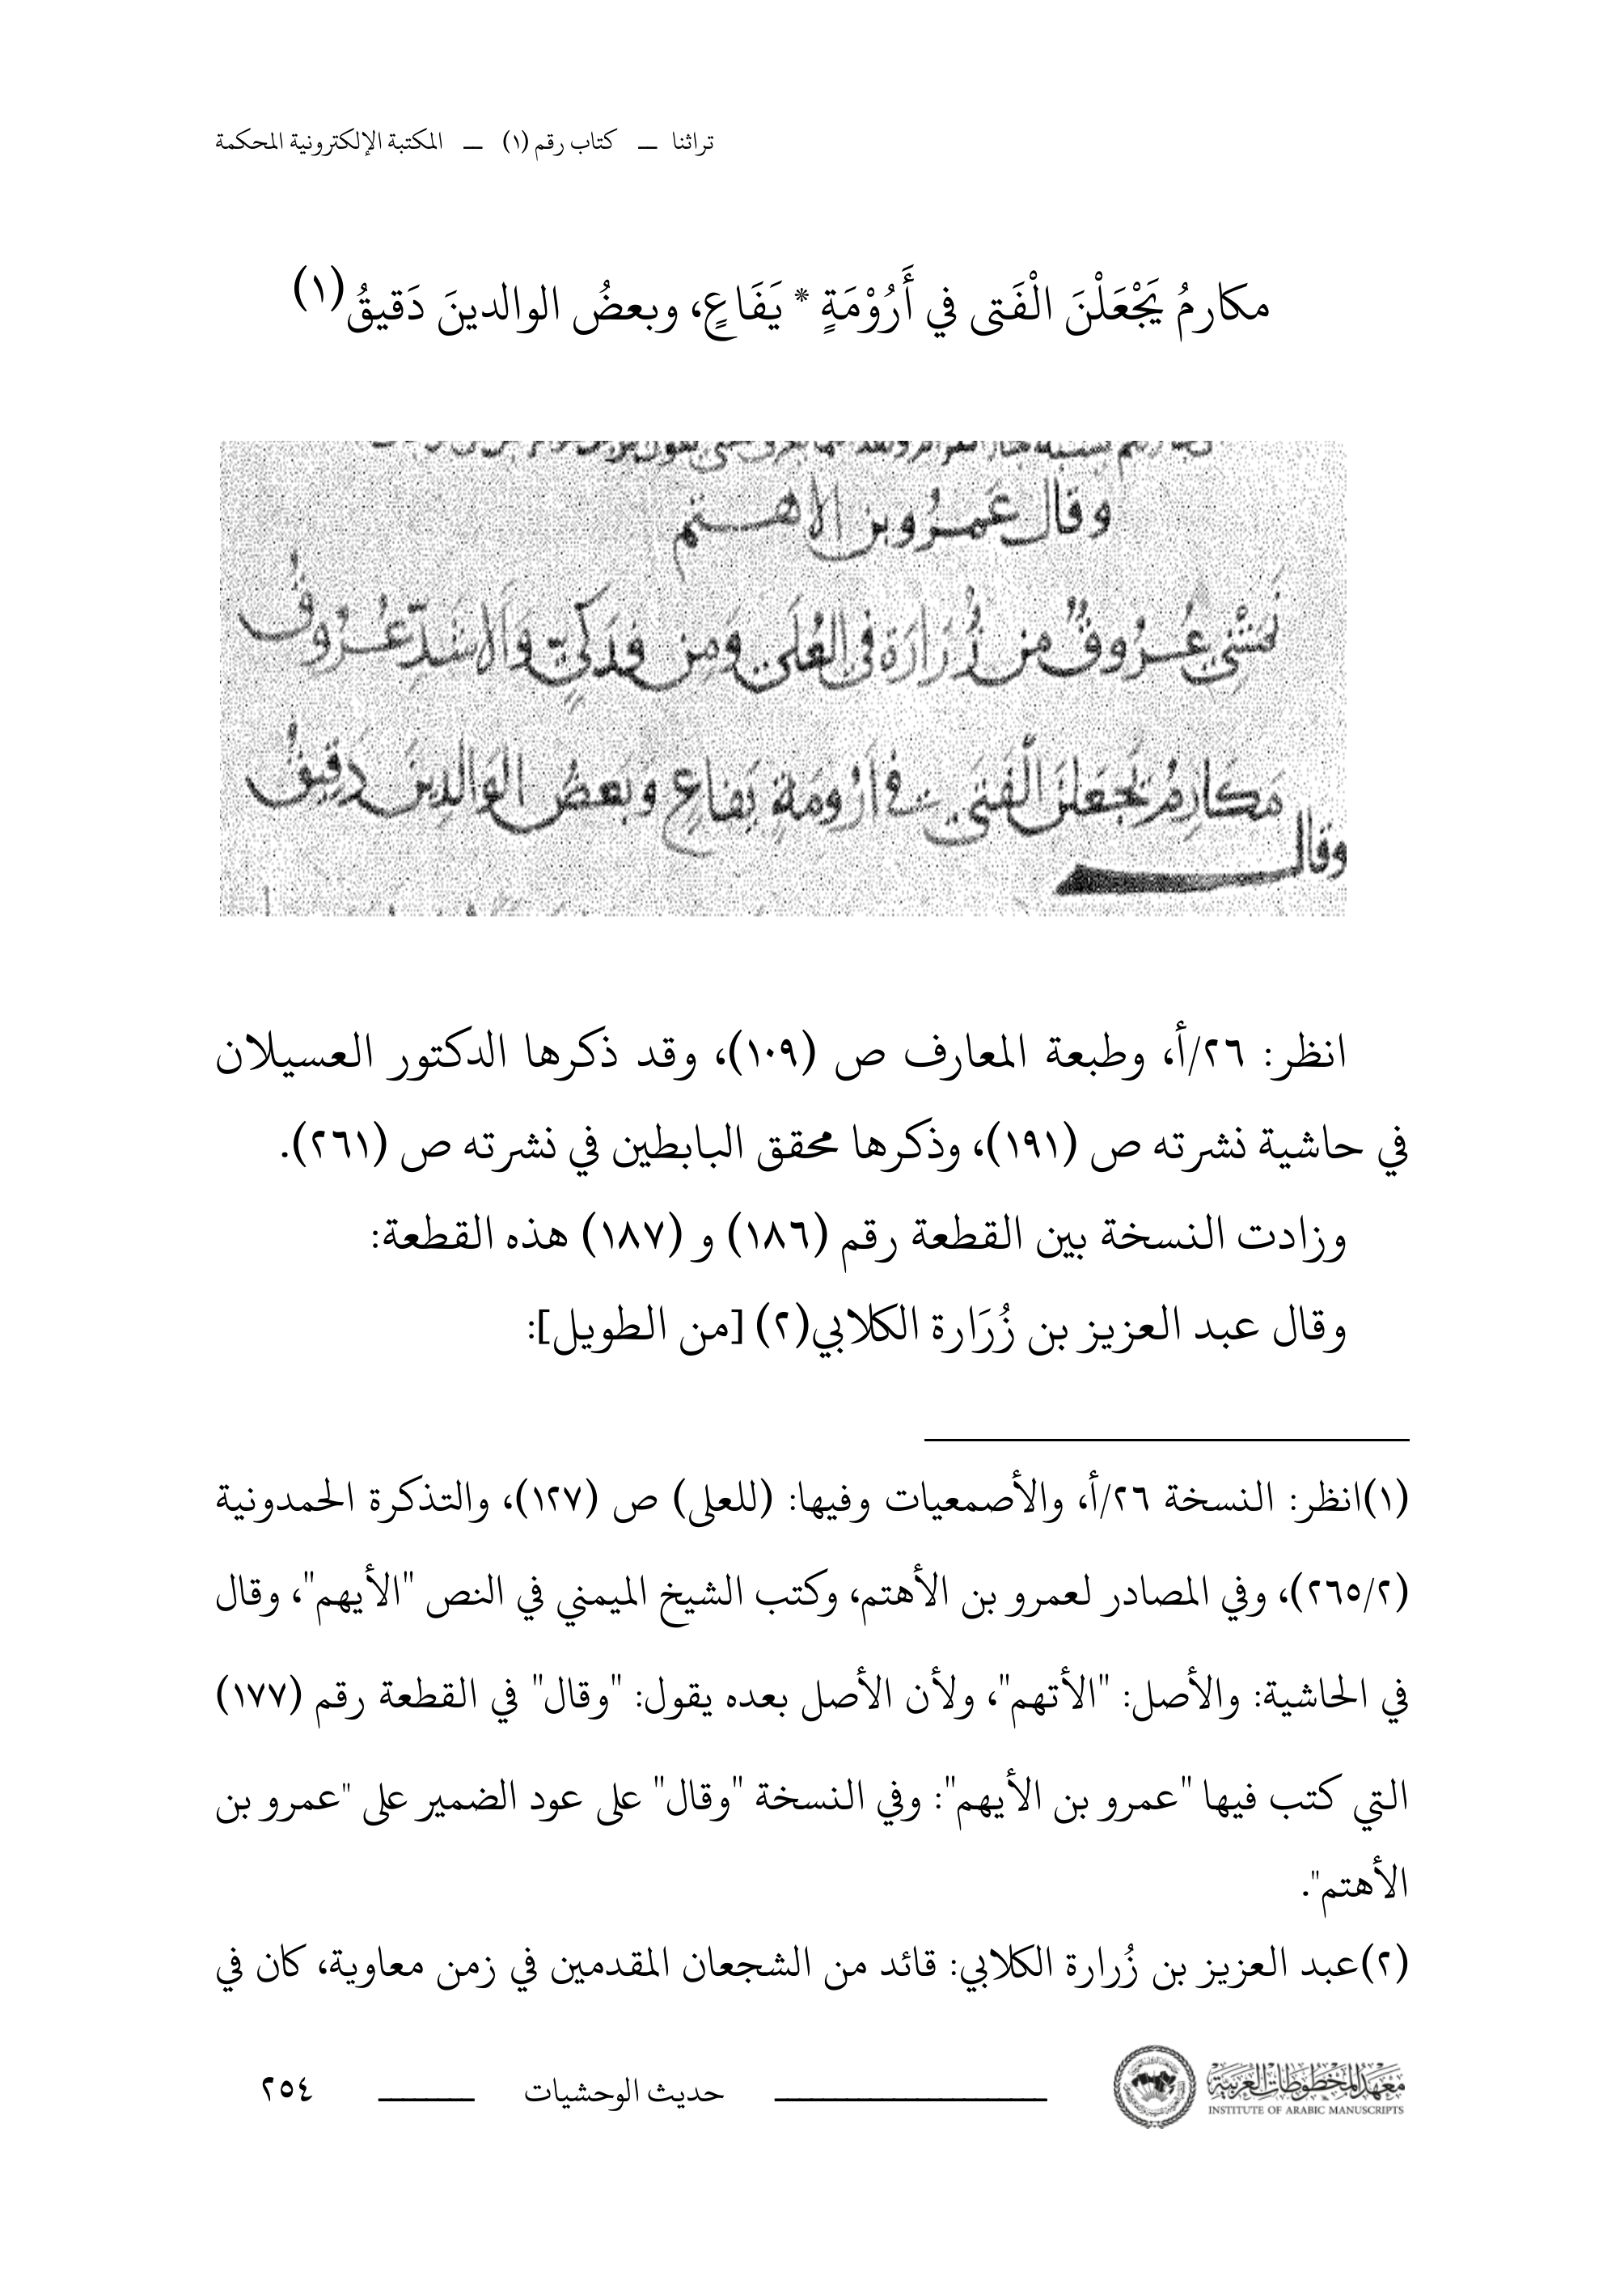 تراثنا – كتاب رقم (١) – المكتبة الإلكترونية المحكمة
مكارمُ يَجْعَلْنَ الْفَتى في أَرُوْمَةٍ * يَفَاعٍ، وبعضُ الوالدينَ دَقيقُ(١)
وقال عمرو بن الاهتم
عُرُوقٌ من زُرَارَة في العُلى وَمن فدكيّ والاشدّ عُرُوقُ
مَكارِمُ يجعلنَ الفَتى في أرُومَةٍ يَفاعٍ وَبَعضُ الوَالدِينَ دَقِيقُ
وقال
انظر: ٢٦/أ، وطبعة المعارف ص (١٠٩)، وقد ذكرها الدكتور العسيلان
في حاشية نشرته ص (١٩١)، وذكرها محقق البابطين في نشرته ص (٢٦١).
وزادت النسخة بين القطعة رقم (١٨٦) و (١٨٧) هذه القطعة:
وقال عبد العزيز بن زُرَارة الكلابي(٢) [من الطويل]:
(١)انظر: النسخة ٢٦/أ، والأصمعيات وفيها: (للعلى) ص (١٢٧)، والتذكرة الحمدونية
(٢/‏٢٦٥)، وفي المصادر لعمرو بن الأهتم، وكتب الشيخ الميمني في النص "الأيهم"، وقال
في الحاشية: والأصل: "الأتهم"، ولأن الأصل بعده يقول: "وقال" في القطعة رقم (١٧٧)
التي كتب فيها "عمرو بن الأيهم": وفي النسخة "وقال" على عود الضمير على "عمرو بن
الأهتم".
(٢)عبد العزيز بن زُرارة الكلابي: قائد من الشجعان المقدمين في زمن معاوية، كان في
معهد المخطوطات العربية
INSTITUTE OF ARABIC MANUSCRIPTS
حديث الوحشيات
٢٥٤